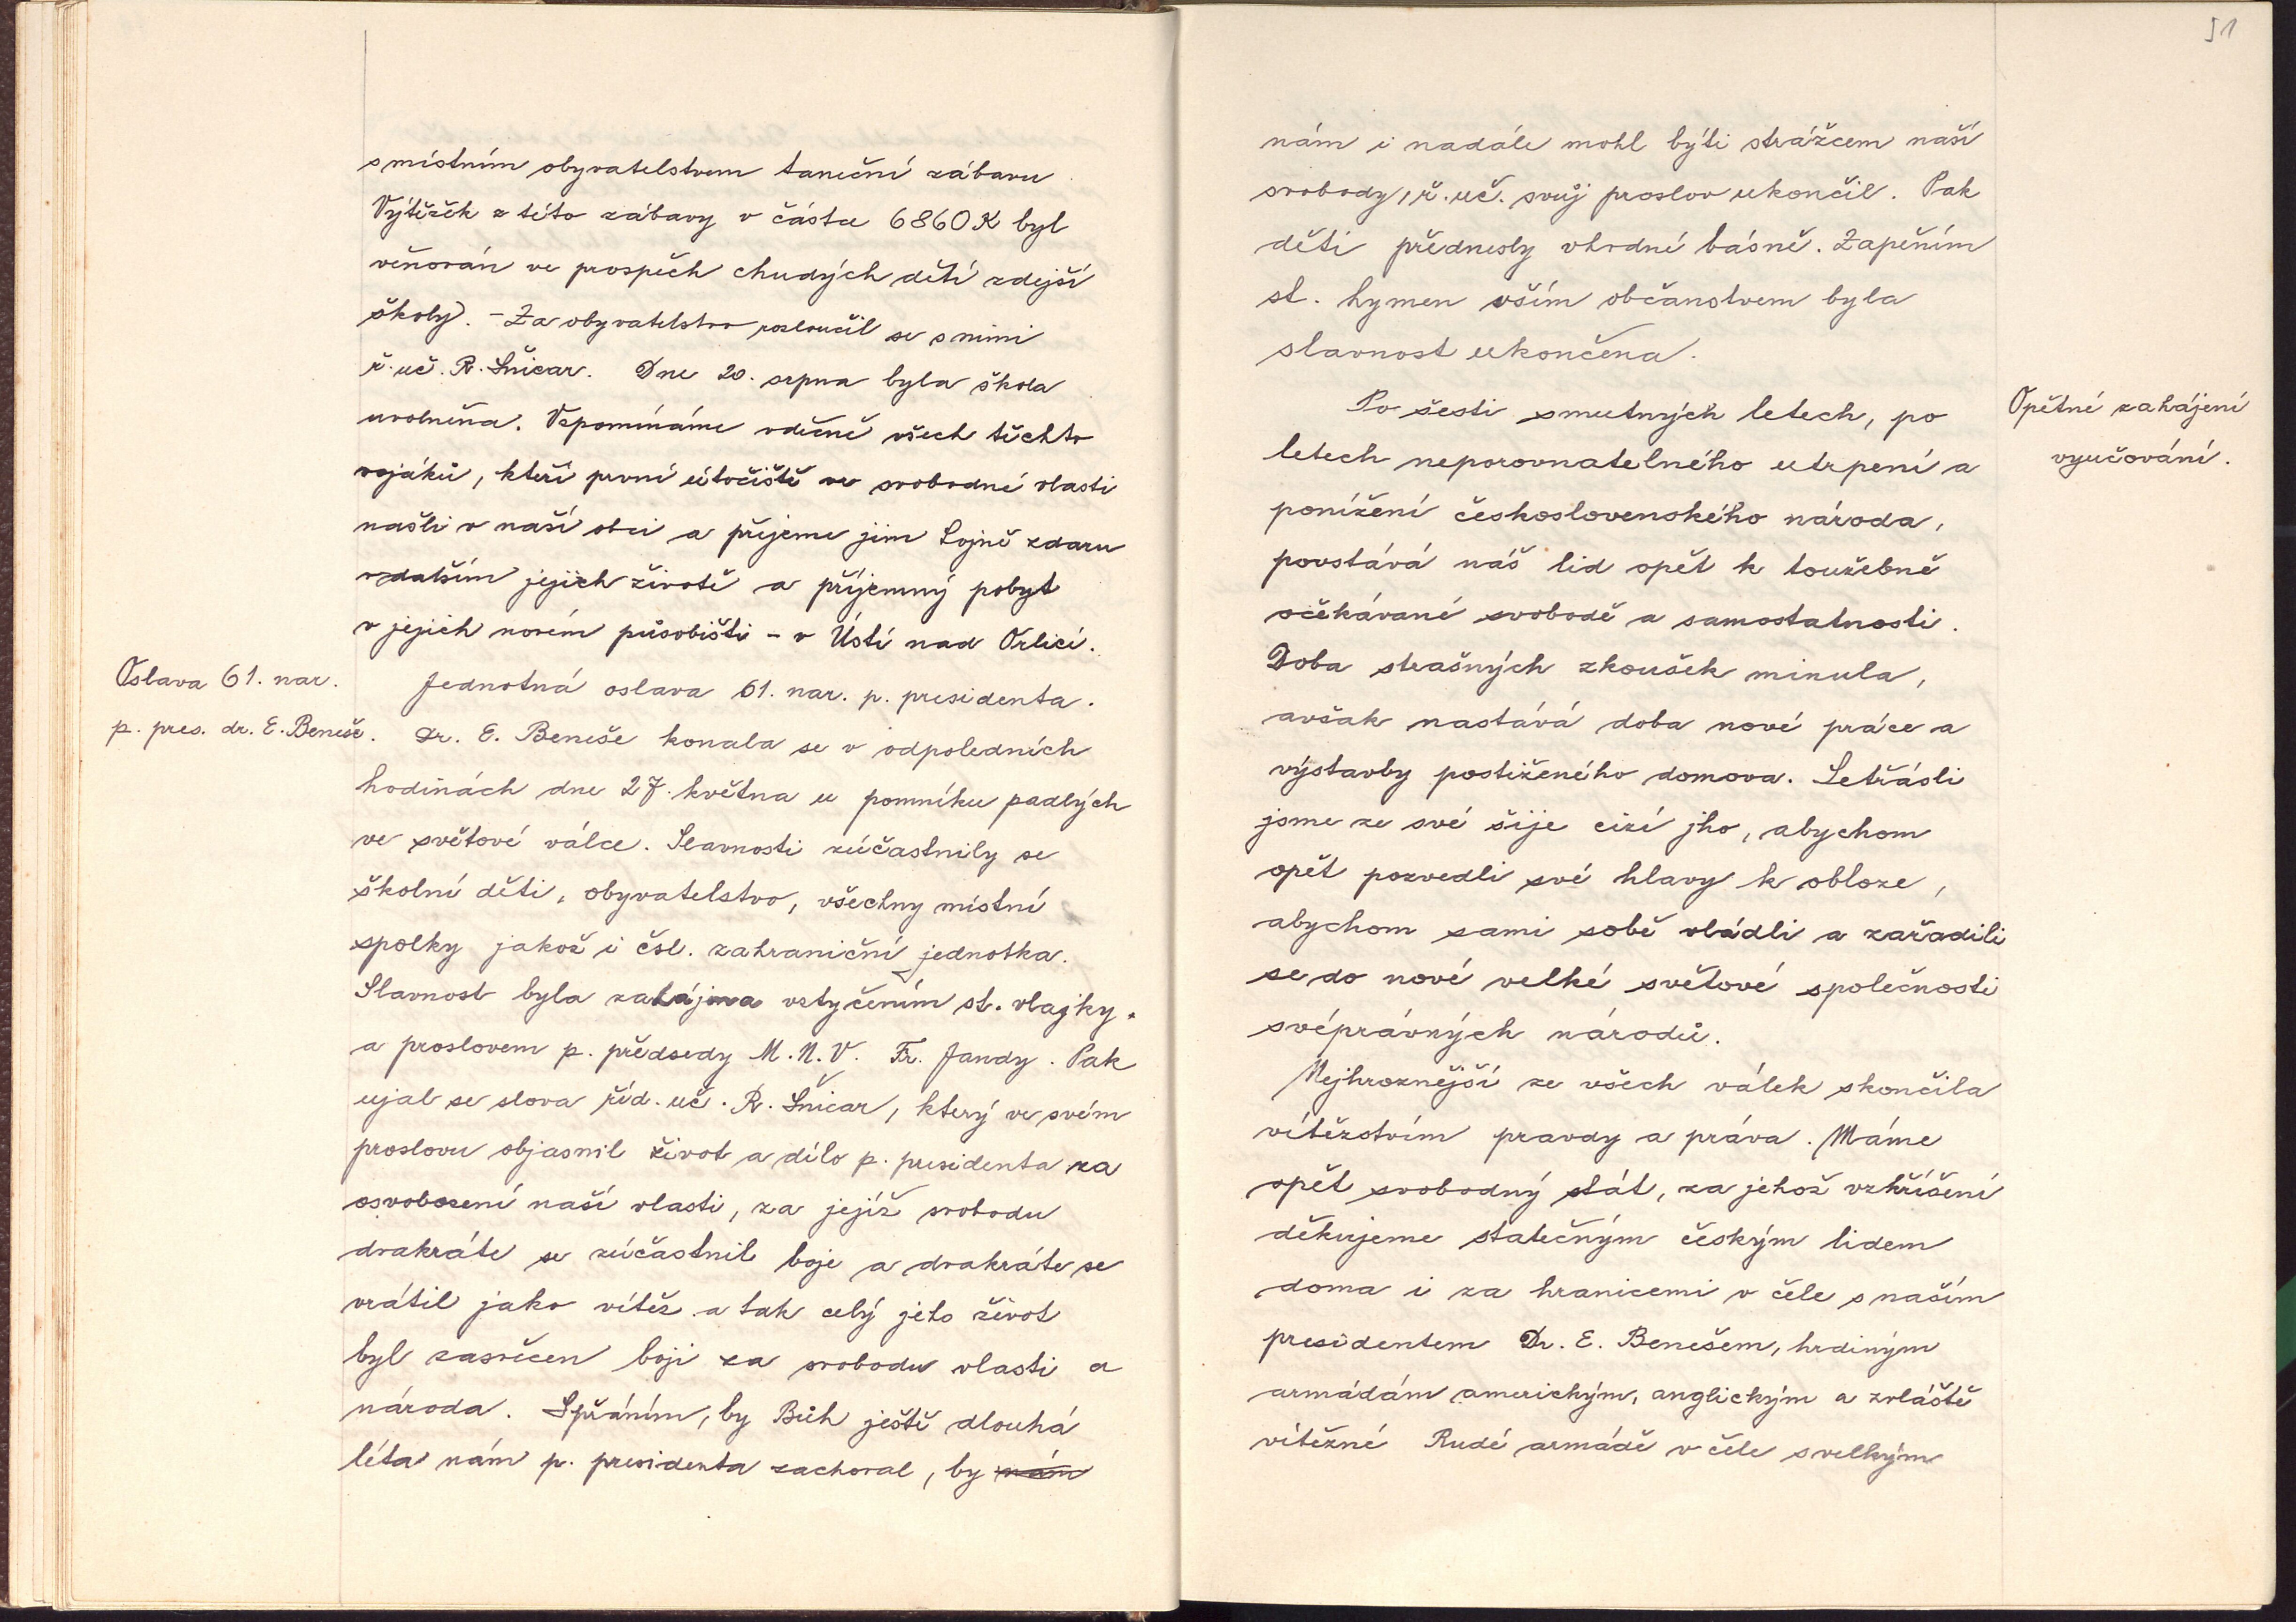 s místním obyvatelstvem taneční zábavu
Výtěžek z této zábavy v částce 6860 K byl
věnován ve prospěch chudých dětí zdejší
školy. - Za obyvatelstvo rozloučil se s nimi
ř. uč. R. Šnicar. Dne 20. srpna byla škola
uvolněna. Vzpomínáme vděčně všech těchto
vojáků, kteří první útočiště ve svobodné vlasti
našli v naší obci a přejeme jim hojně zdaru
v dalším jejich životě a příjemný pobyt
v jejich novém působišti - v Ústí nad Orlicí.
Oslava 61. nar.
p. pres. dr. E. Beneše.
Jednotná oslava 61. nar. p. presidenta.
Dr. E. Beneše konala se v odpoledních
hodinách dne 27. května u pomníku padlých
ve světové válce. Slavnosti zúčastnily se
školní děti, obyvatelstvo, všechny místní
spolky jakož i čsl. zahraniční jednotka.
Slavnost byla zahájena vztyčením st. vlajky.
a proslovem p. předsedy M. N. V. Fr. Jandy. Pak
ujal se slova říd. uč. R. Šnicar, který ve svém
proslovu objasnil život a dílo p. presidenta za
osvobození naší vlasti, za jejíž svobodu
dvakráte se zúčastnil boje a dvakráte se
vrátil jako vítěz a tak celý jeho život
byl zasvěcen boji za svobodu vlasti a
národa. S přáním, by Bůh ještě dlouhá
léta nám p. presidenta zachoval, by nám
51
nám i nadále mohl býti strážcem naší
svobody, ř. uč. svůj proslov ukončil. Pak
děti přednesly vhodné básně. Zapěním
st. hymen vším občanstvem byla
slavnost ukončena.
Opětné zahájení
vyučování.
Po šesti smutných letech, po
letech neporovnatelného utrpení a
ponížení československého národa,
povstává náš lid opět k toužebně
očekávané svobodě a samostatnosti.
Doba strašných zkoušek minula,
avšak nastává doba nové práce a
výstavby postiženého domova. Setřásli
jsme ze své šije cizí jho, abychom
opět pozvedli své hlavy k obloze,
abychom sami sobě vládli a zařadili
se do nové velké světové společnosti
svéprávných národů.
Nejhroznější ze všech válek skončila
vítězstvím pravdy a práva. Máme
opět svobodný stát, za jehož vzkříšení
děkujeme statečným českým lidem
doma i za hranicemi v čele s naším
presidentem Dr. E. Benešem, hrdiným
armádám americkým, anglickým a zvláště
vítězné Rudé armádě v čele s velkým